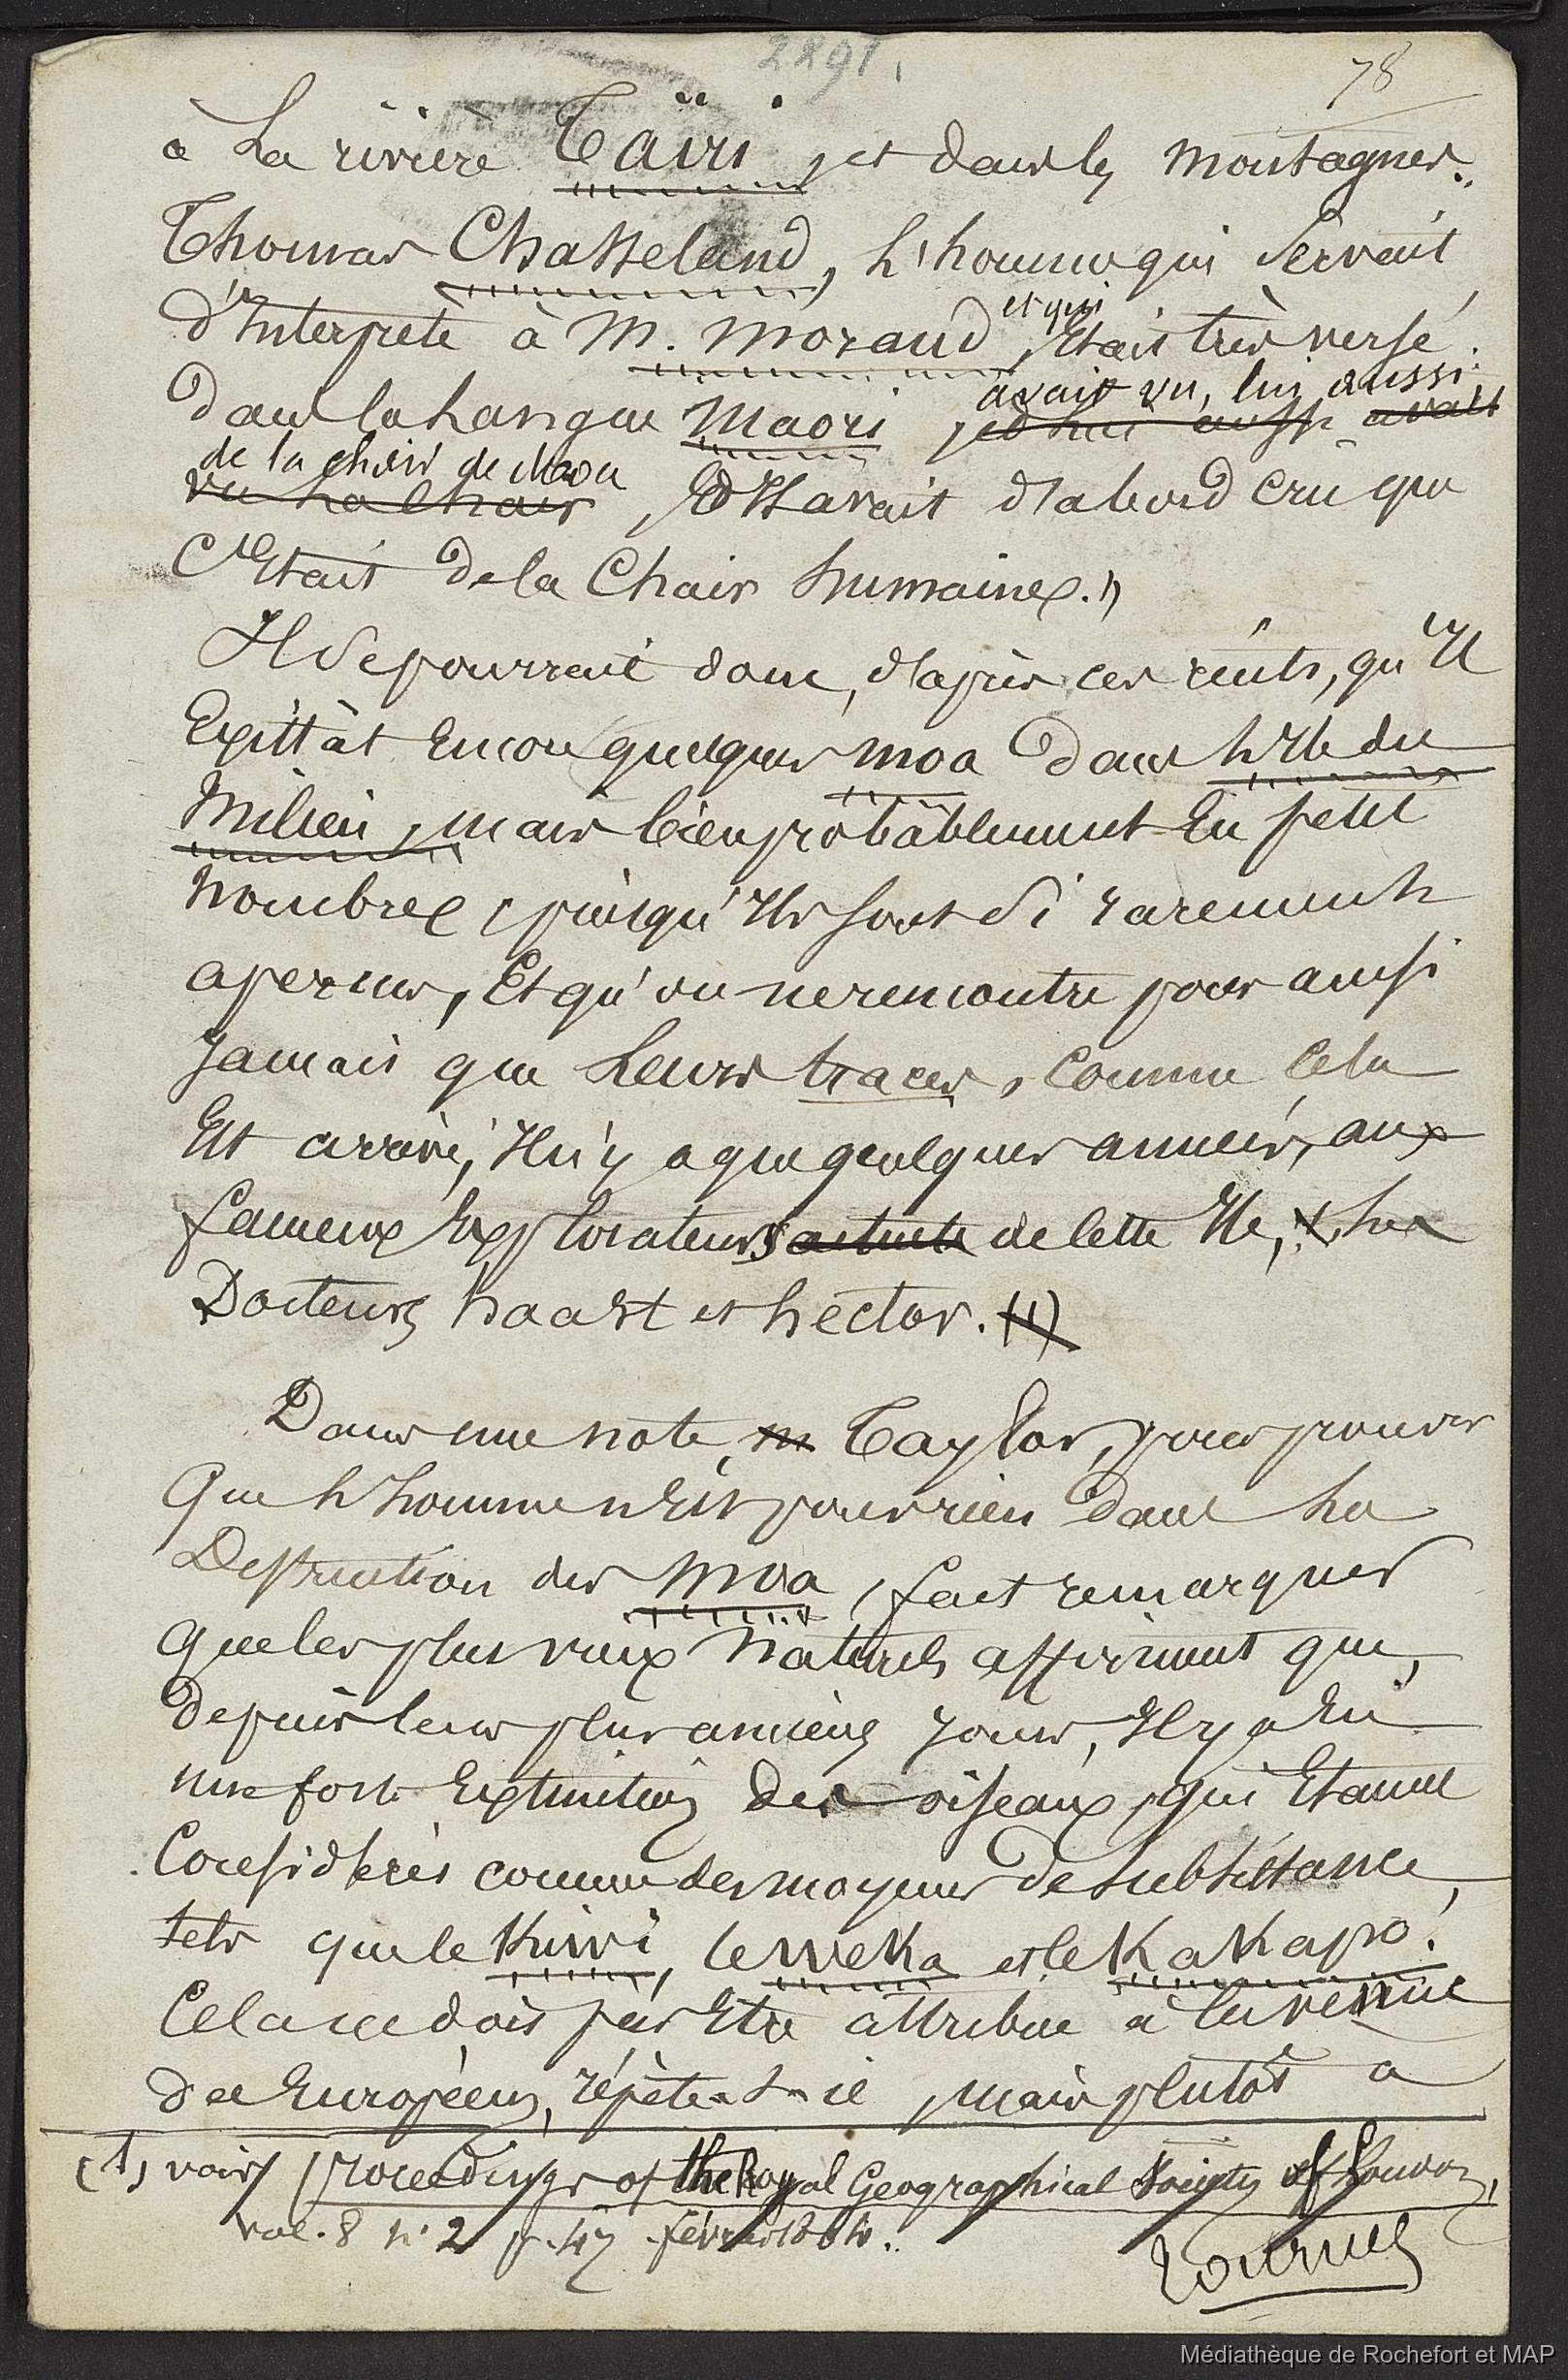 2291.
78
à La rivière Taïri, et dans les montagnes.
Thomas Chasseland, L'homme qui Servait
d'Interprête à M. Morand et qui Etait très versé
avait vu, lui aussi,
dans la Langue Maori, et lui aussi avait
de la chair de moa
vu La Chair, Et Il avait d'abord cru que
C'Etait de la Chair humaine. »
Il Se pourrait donc, d'après ces récits, qu'Il
Existât Encore quelques moa dans L'Ile du
Milieu, mais bien probablement En petit
Nombre, puisqu'Ils sont Si rarement
aperçus, Et qu'on ne rencontre pour ainsi
Jamais que Leurs traces, Comme Cela
Est arrivé, Il n'y a que quelques années, aux
fameux Explorateurs de cette Ile, Les
Docteurs haast et hector. (1)
Dans une note, M Taylor, pour prouver
Que L'homme n'Est pour rien dans La
Destruction des Moa, fait remarquer
que les plus vieux Naturels affirment que,
depuis leurs plus anciens Jours, Il y a Eu
une forte Extinction des oiseaux, qui Etaient
Considérés comme des moyens de subsistance,
tels que le Kiwi, le weka et le Kakapo.
Cela ne doit pas Etre attribué à la venue
des Européens, répète-t-il, mais plutôt à
(1) voir Proceedings of the Royal Geographical Society of London,
vol. 8 n° 2 p. 47 février 1864.
tournez
Médiathèque de Rochefort et MAP